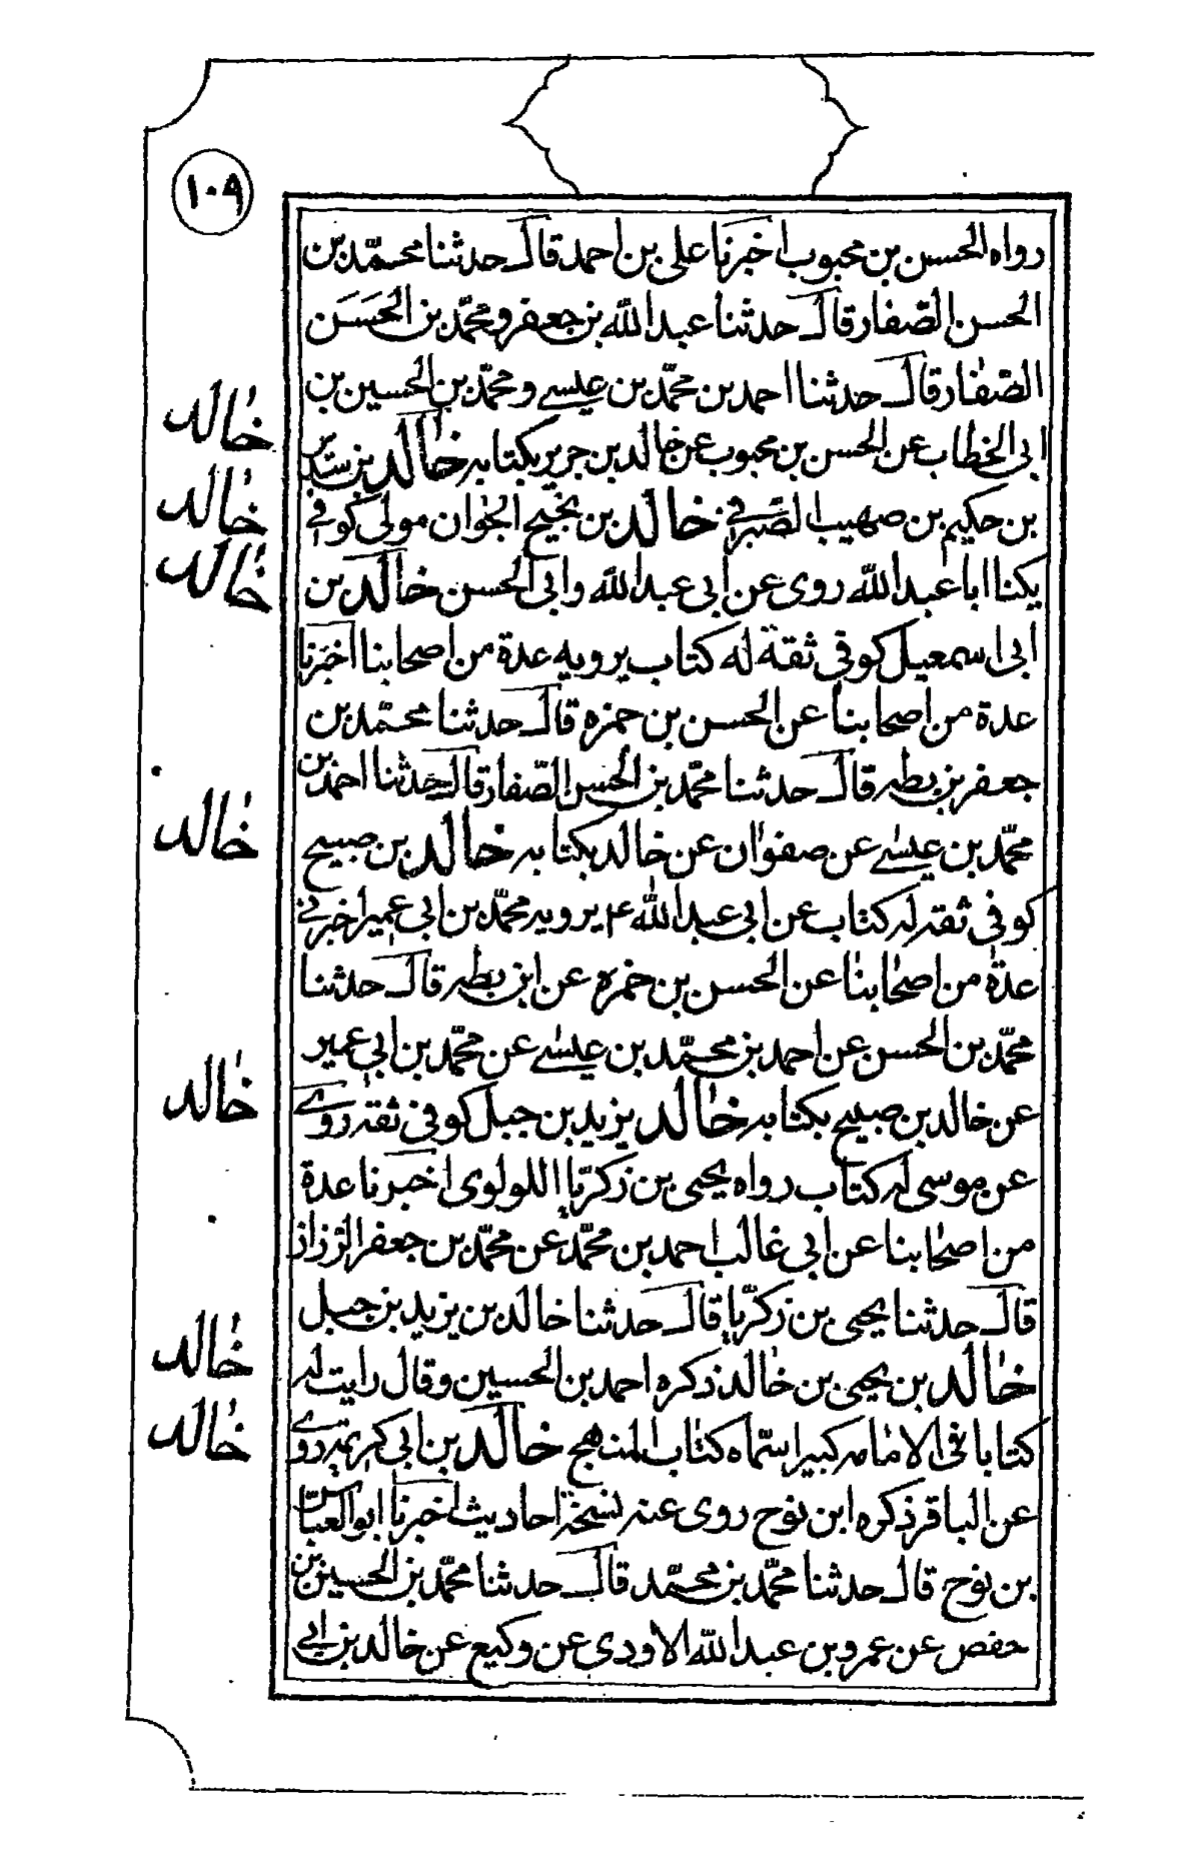 ١٠٩
رواه الحسن بن محبوب اخبرنا على بن احمد قال حدثنا محمّد بن
الحسن الصّفار قال حدثنا عبد اللّه بن جعفر و محمّد بن الحَسَن
الصّفار قال حدثنا احمد بن محمّد بن عيسے و محمّد بن الحسين بن
ابى الخطاب عن الحسن بن محبوب عن خالد بن جرير بكتابه خالد بن سدير
بن حكيم بن صهيب الصّيرفى خالد بن نجيح الجوان مولى كوفى
يكنا ابا عبد اللّه روى عن ابى عبد اللّه وابى الحسن خالد بن
ابى اسمعيل كوفى ثقة له كتاب يرويه عدة من اصحابنا اخبرنا
عدة من اصحابنا عن الحسن بن حمزه قال حدثنا محمّد بن
جعفر بن بطه قال حدثنا محمّد بن الحسن الصّفار قال حدثنا احمد بن
محمّد بن عيسے عن صفوان عن خالد بكتابه خالد بن صبيح
كوفى ثقه له كتاب عن ابى عبد اللّه ع يرويه محمّد بن ابى عمير اخبرنى
عدة من اصحابنا عن الحسن بن حمزه عن ابن بطه قال حدثنا
محمّد بن الحسن عن احمد بن محمّد بن عيسے عن محمّد بن ابى عمير
عن خالد بن صبيح بكتابه خالد يزيد بن جبل كوفى ثقه روے
عن موسى له كتاب رواه يحيى بن زكريّا اللولوى اخبرنا عدة
من اصحابنا عن ابى غالب احمد بن محمّد عن محمّد بن جعفر الرّزاز
قال حدثنا يحيى بن زكريّا قال حدثنا خالد بن يزيد بن جبل
خالد بن يحيى بن خالد ذكره احمد بن الحسين وقال رايت له
كتابا فى الامامه كبيرا سمّاه كتاب المنهج خالد بن ابى كريمه روے
عن الباقر ذكره ابن نوح روى عنه نسخة احاديث اخبرنا ابو العبّاس
بن نوح قال حدثنا محمّد بن محمّد قال حدثنا محمّد بن الحسين بن
حفص عن عمرو بن عبد اللّه الاودى عن وكيع عن خالد بن ابى
خالد
خالد
خالد
خالد
خالد
خالد
خالد